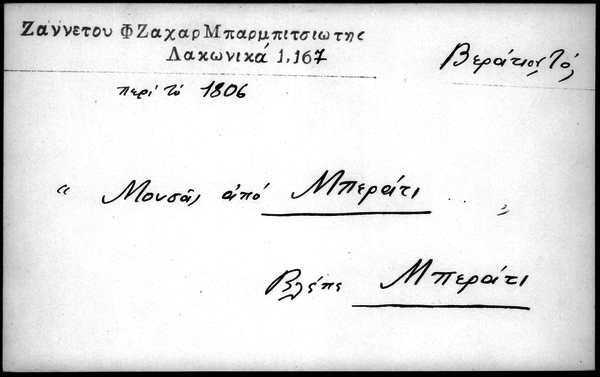 Ζαννετου Φ Ζαχαρ Μπαρμπιτσιωτης
Λακωνικά 1,167
Βεράτιον, Τό,
περί τό 1806
“ Μουσᾶς ἀπό Μπεράτι „
Βλέπε Μπεράτι